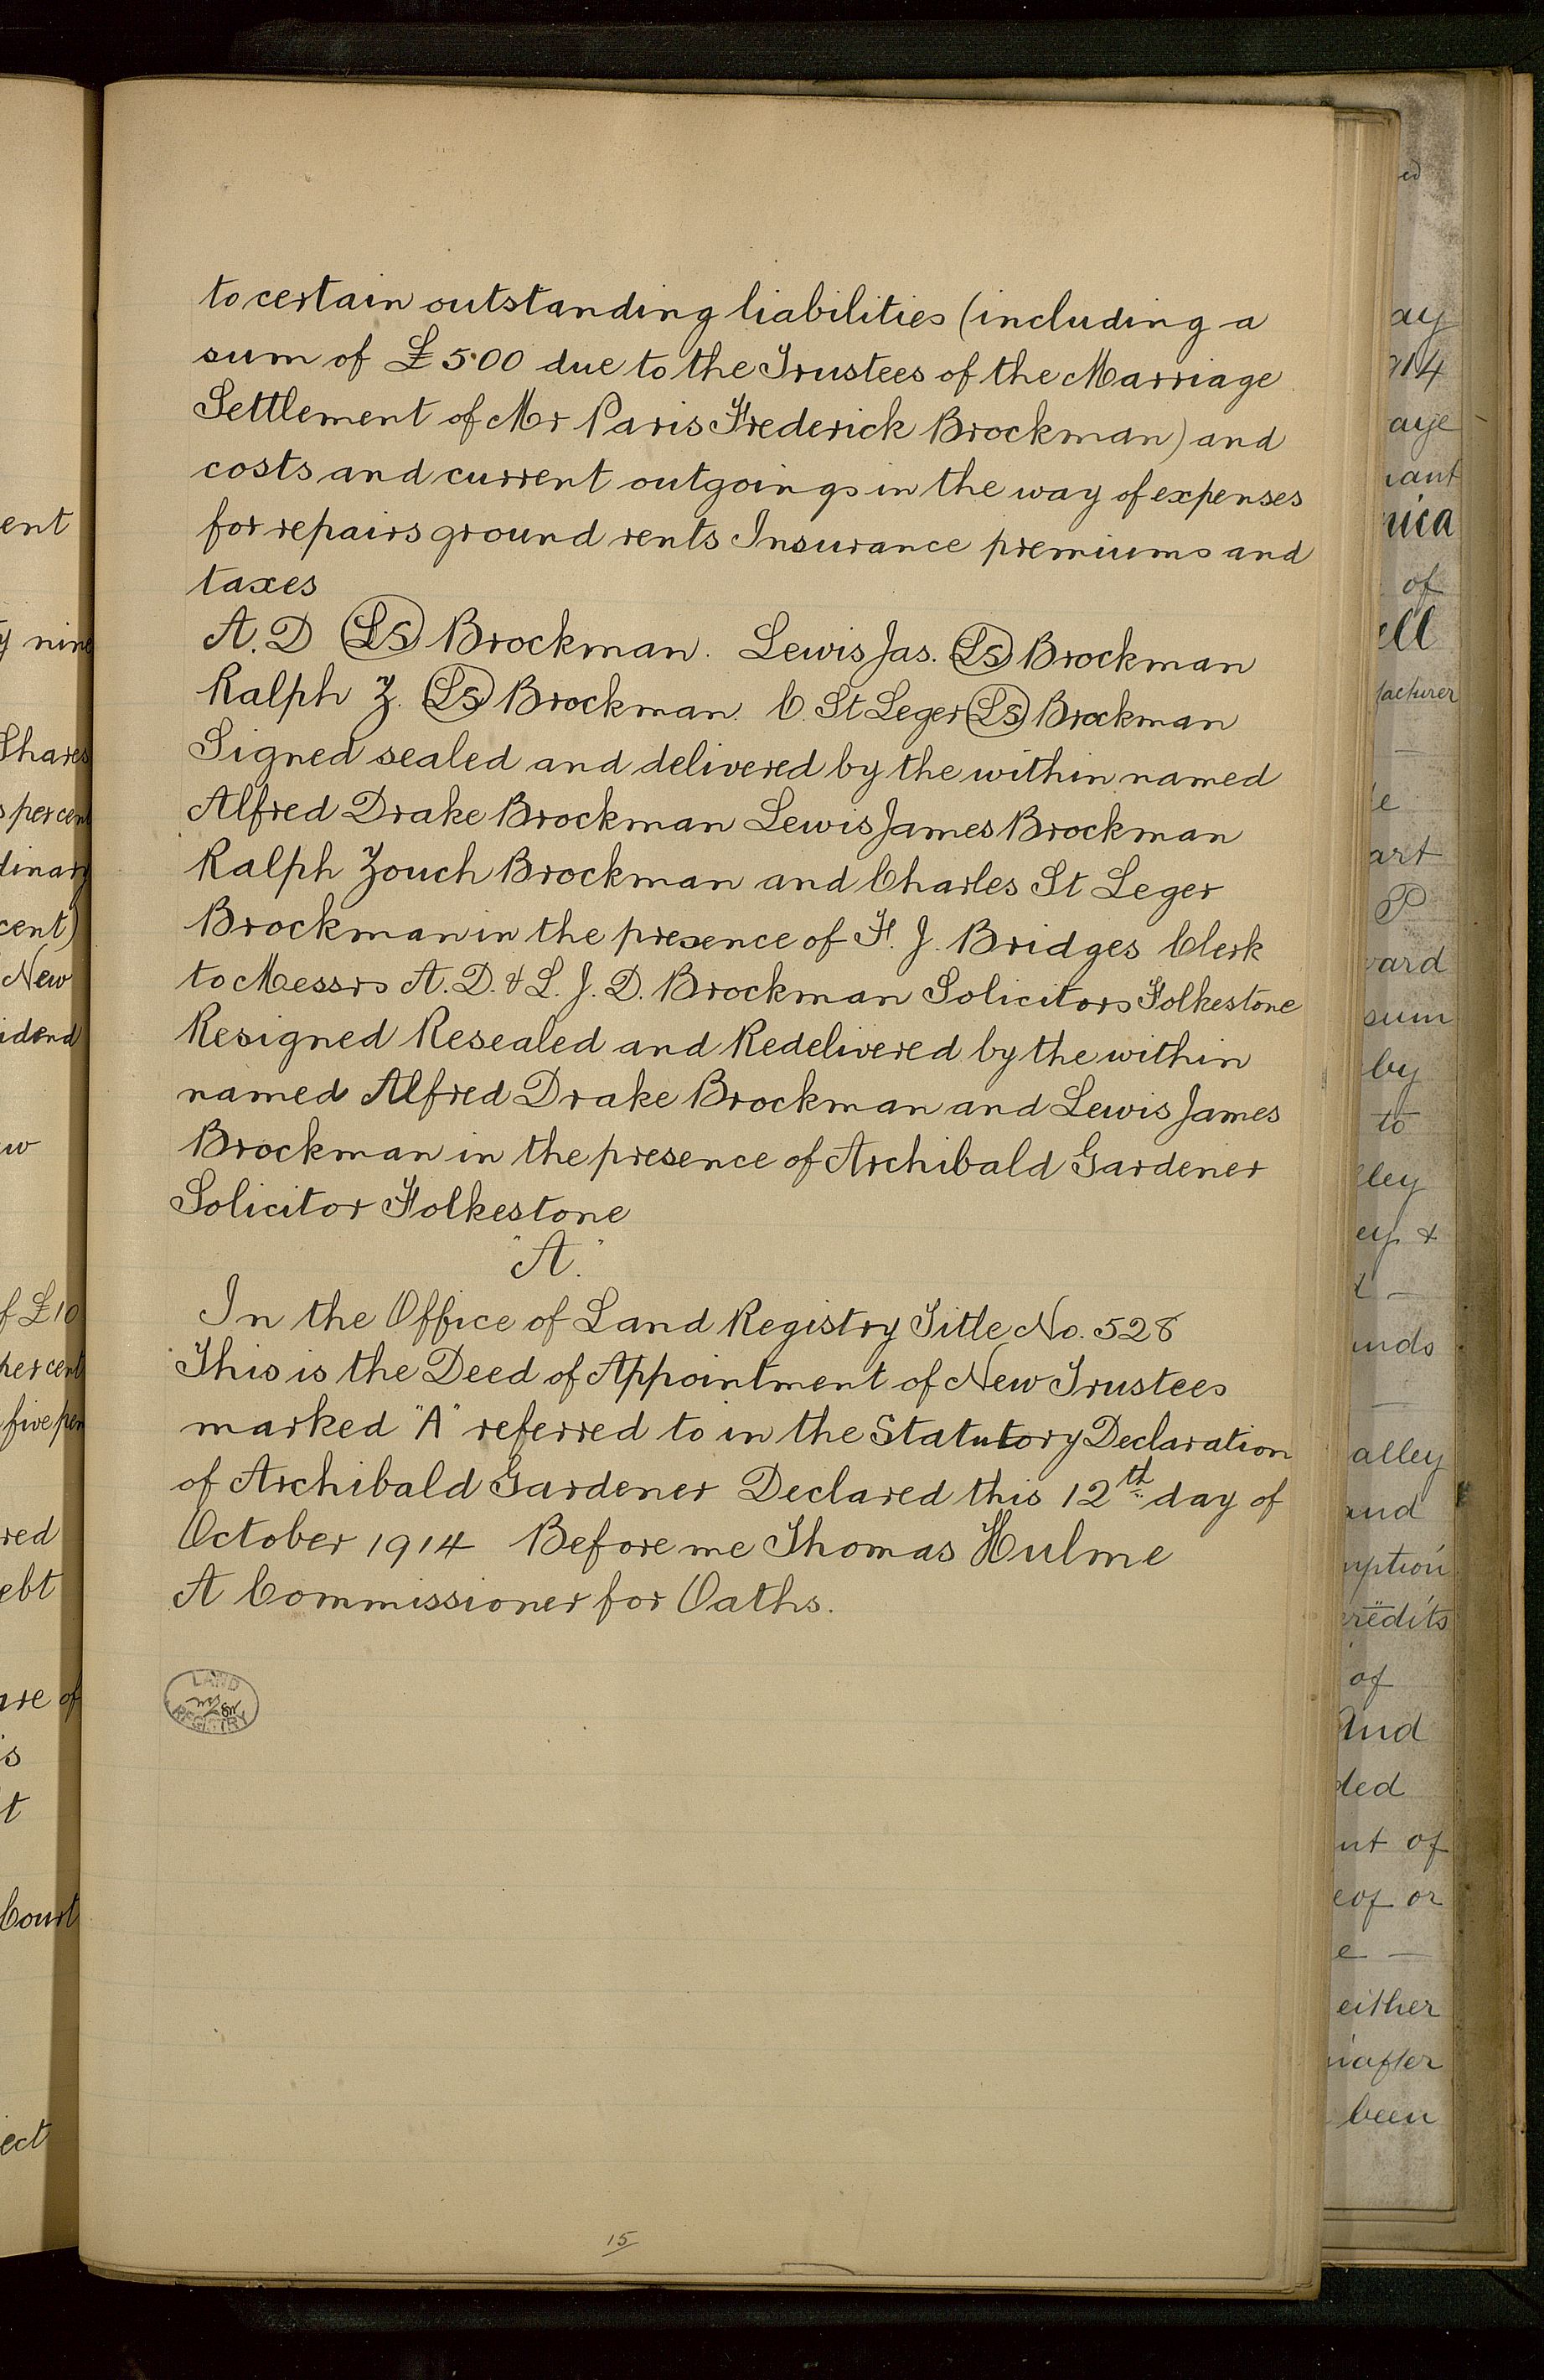 to certain outstanding liabilities (including a
sum of £500 due to the Trustees of the Marriage
Settlement of Mr Paris Frederick Brockman) and
costs and current outgoings in the way of expenses
for repairs ground rents Insurance premiums and
taxes
A. D (LS) Brockman. Lewis Jas. (LS) Brockman
Ralph Z. (LS) Brockman. C. St Leger (LS) Brockman
Signed sealed and delivered by the within named
Alfred Drake Brockman Lewis James Brockman
Ralph Zouch Brockman and Charles St Leger
Brockman in the presence of F. J. Bridges Clerk
to Messrs A. D. & L. J. D. Brockman Solicitors Folkestone
Resigned Resealed and Redelivered by the within
named Alfred Drake Brockman and Lewis James
Brockman in the presence of Archibald Gardener
Solicitor Folkestone
"A."
In the Office of Land Registry Title No. 528
This is the Deed of Appointment of New Trustees
marked "A" referred to in the Statutory Declaration
of Archibald Gardener Declared this 12th day of
October 1914 Before me Thomas Hulme
A Commissioner for Oaths.
LAND
REGISTRY
15